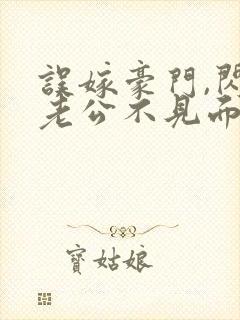 誤嫁豪門,閃
老公不見而
寶姑娘